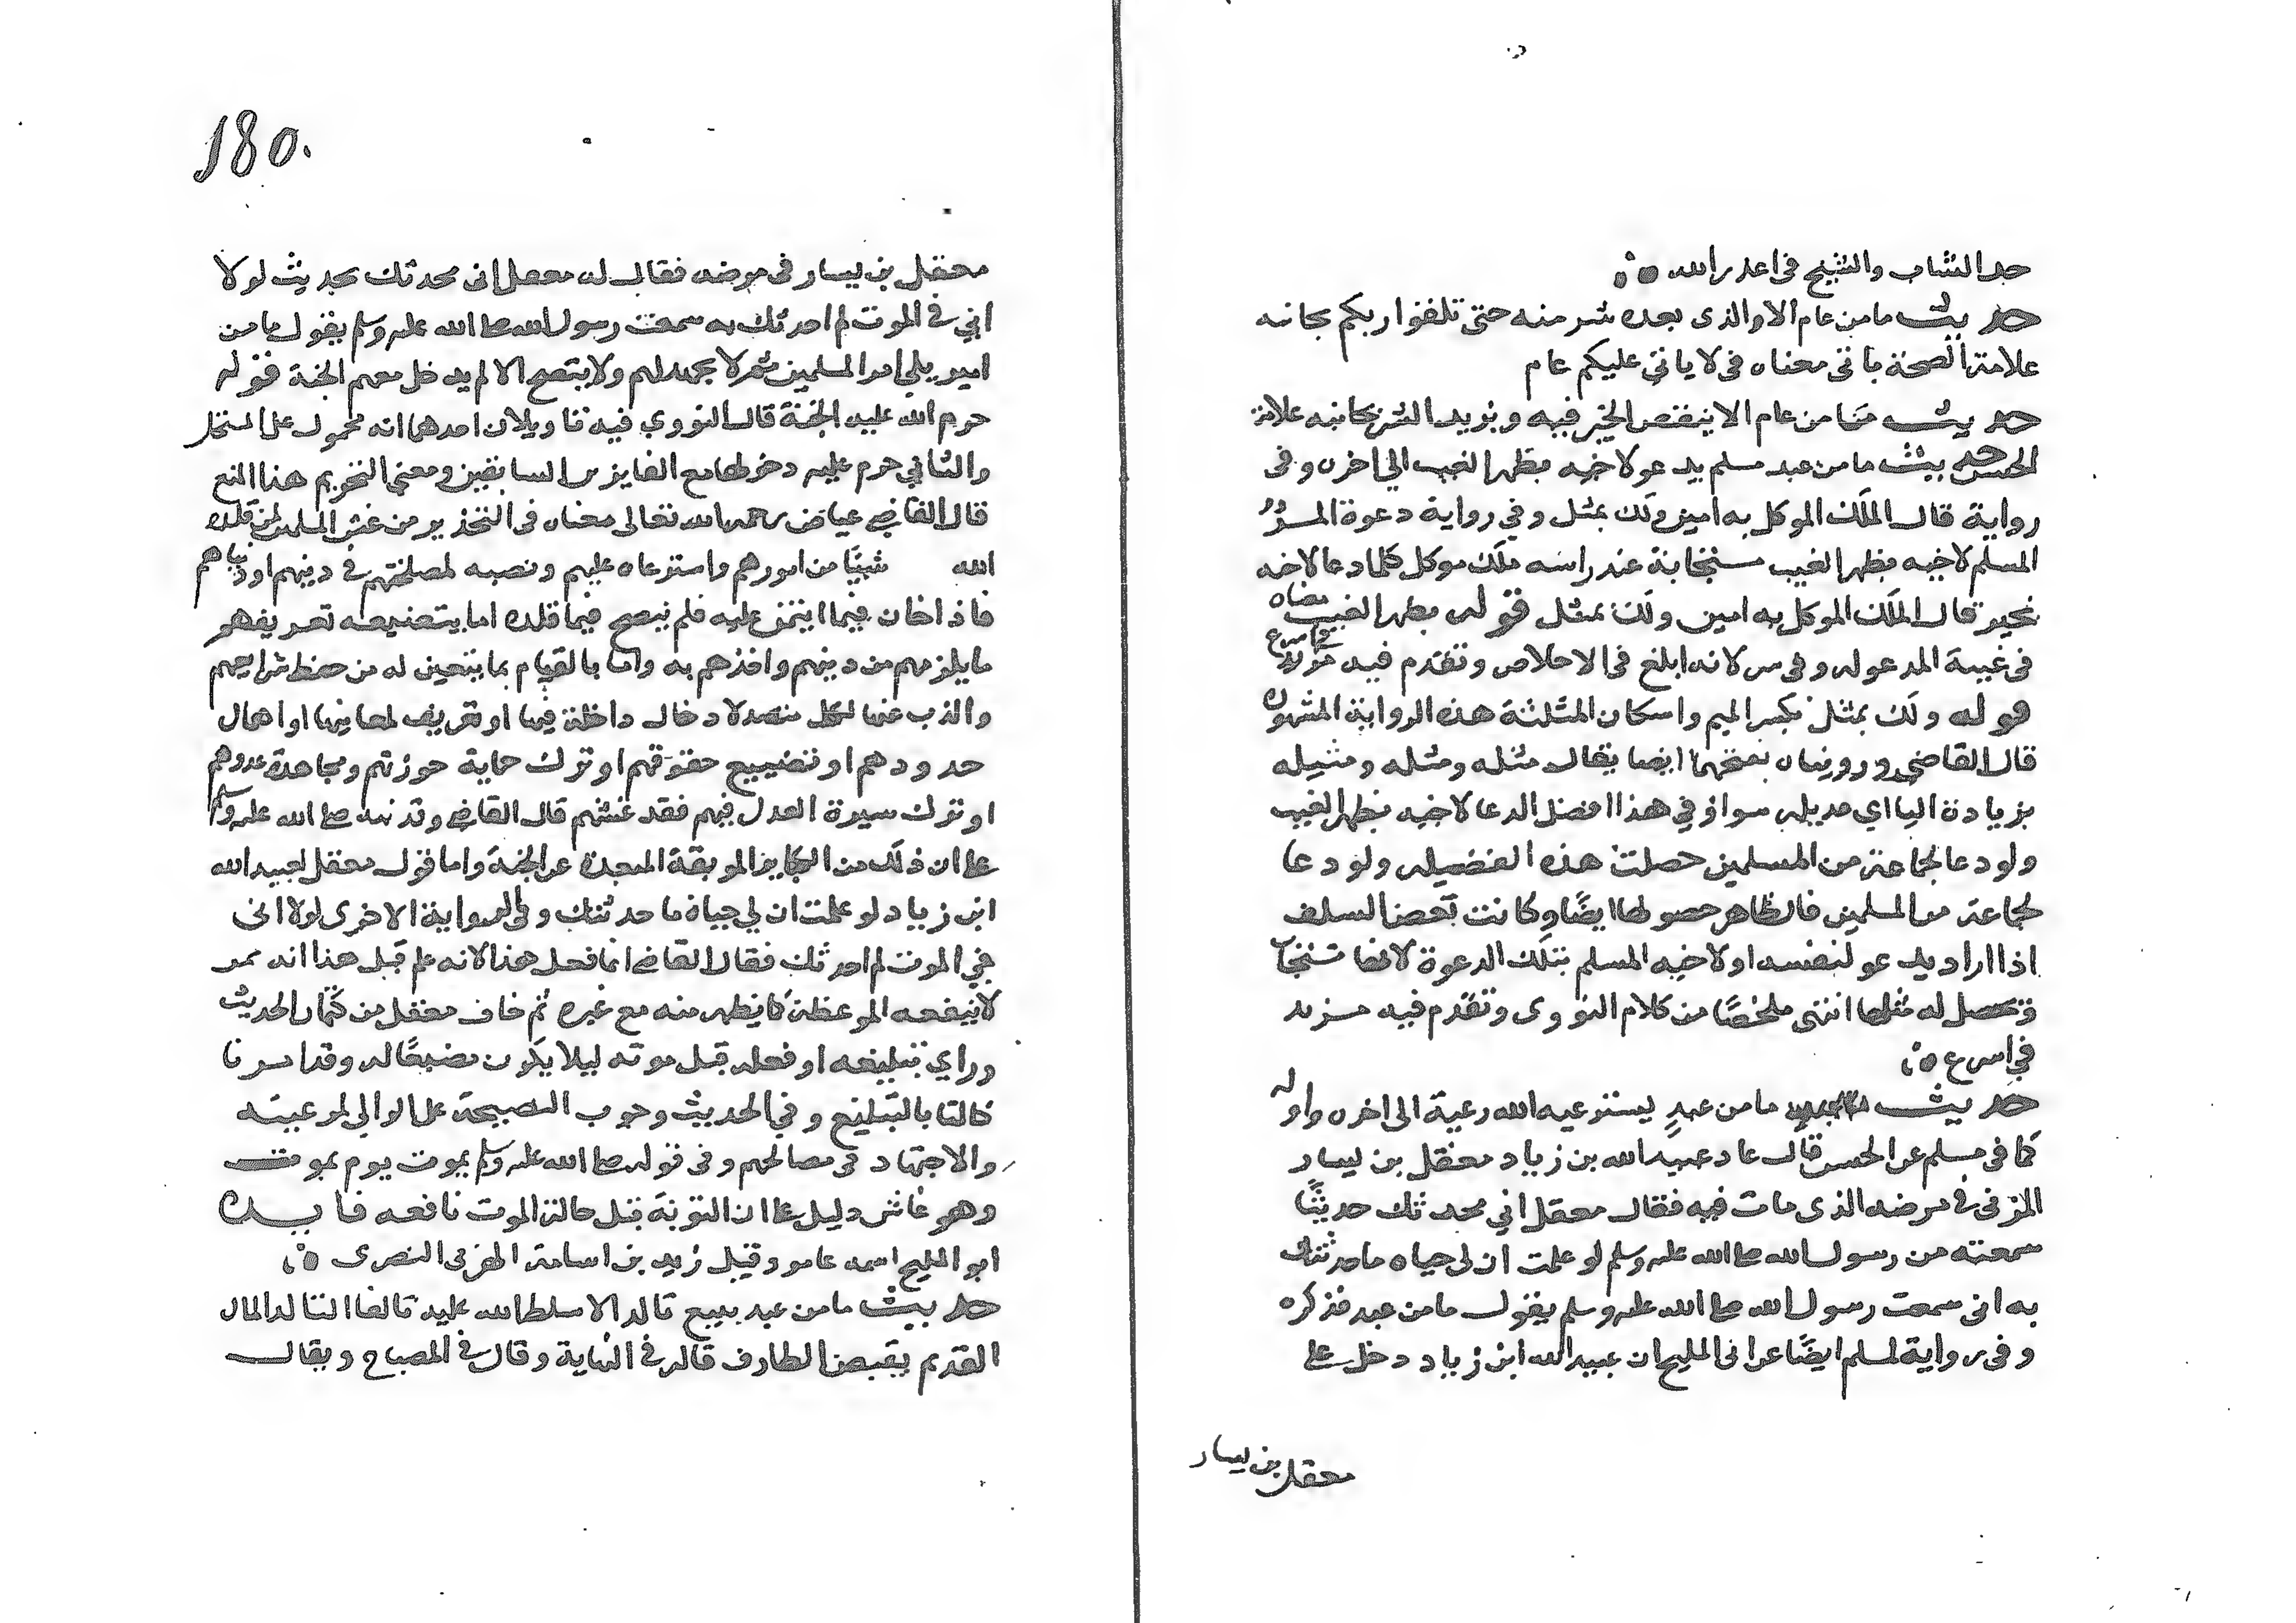 حد الشاب والشيخ في اعذر الله ه
حديث ما من عام الا والذى بعده شر منه حتى تلقوا ربكم بجانبه
علامة الصحة ياتى معناه فى لا ياتي عليكم عام
حديث ما من عام الا ينقص الخير فيه ويزيد الشر بجانبه علامة
الحسن حديث ما من عبد مسلم يدعو لاخيه بظهر الغيب الى اخره وفى
رواية قال الملك الموكل به امين ولك بمثل وفي رواية دعوة المرء
المسلم لاخيه بظهر الغيب مستجابة عند راسه ملك موكل كلما دعا لاخيه
بخير قال الملك الموكل به امين ولك بمثل قوله بظهر الغيب معناه
فى غيبة المدعو له وفى سر لانه ابلغ فى الاخلاص وتقدم فيه
قوله ولك بمثل بكسر الميم واسكان المثلثة هذه الرواية المشهورة
قال القاضي ورويناه بفتحهما ايضا يقال مثله ومثله ومثيله
بزيادة اليا اي عديله سوا وفي هذا افضل الدعا لاخيه بظهر الغيب
ولو دعا لجماعة من المسلمين حصلت هذه الفضيله ولو دعا
لجماعة من المسلمين فالظاهر حصولها ايضًا وكانت بعض السلف
اذا اراد يدعو لنفسه او لاخيه المسلم بتلك الدعوة لانها تستجاب
وتحصل له مثلها انتهى ملخصًا من كلام النووى وتقدم فيه مزيد
في اسرع ه
حديث ما من عبدٍ يسترعيه الله رعية الى اخره واوله
كما فى مسلم عن الحسن قال عاد عبيد الله بن زياد معقل بن يسار
المزنى في مرضه الذى مات فيه فقال معقل اني محدثك حديثًا
سمعته من رسول الله صلى الله عليه وسلم لو علمت ان لى حياه ما حدثتك
به انى سمعت رسول الله صلى الله عليه وسلم يقول ما من عبد فذكره
وفى رواية لمسلم ايضًا عن ابى المليح ان عبيد الله ابن زياد دخل على
معقل بن يسار
180
معقل بن يسار فى مرضه فقال له معقل انى محدثك بحديث لولا
اني في الموت لم احدثك به سمعت رسول الله صلى الله عليه وسلم يقول ما من
امير يلي امر المسلمين ثم لا يجهد لهم ولا ينصح الا لم يدخل معهم الجنة قوله
حرم الله عليه الجنة قال النووي فيه تاويلان احدهما انه محمول على المستحل
والثاني حرم عليه دخولها مع الفايزين السابقين ومعنى التحريم هذا المنع
قال القاضي عياض رحمه الله تعالى معناه فى التحذير من غش المسلمين لمن قلده
الله شيئًا من امورهم واسترعاه عليهم ونصبه لمصلحتهم في دينهم او دنياهم
فاذا خان فيما ايتمن عليه فلم ينصح فيما قلده اما بتضييعه تعريفهم
ما يلزمهم من دينهم واخذهم به واما بالقيام بما يتعين له من حفظ شرايعهم
والذب عنها لكل متصد لادخال داخلة فيها او تحريف لمعانيها او اهمال
حدودهم او تضييع حقوقهم او ترك حماية حوزتهم ومجاهدة عدوهم
او ترك سيرة العدل فيهم فقد غشهم قال القاضي وقد نبه صلى الله عليه وسلم
على ان ذلك من الكباير الموبقة المبعدة عن الجنة واما قول معقل لعبيد الله
ابن زياد لو علمت ان لي حياة ما حدثتك وفي الرواية الاخرى لولا انى
في الموت لم احدثك فقال القاضي انما فعل هذا لانه علم قبل هذا انه ممن
لا ينفعه الموعظة كما يظهر منه مع غيره ثم خاف معقل من كتمان الحديث
وراي تبليغه او فعله قبل موته ليلا يكون مضيعًا له وقد امرنا
كالنا بالتبليغ وفي الحديث وجوب النصيحة على الوالي لرعيته
والاجتهاد فى مصالحهم وفى قوله صلى الله عليه وسلم يموت يوم يموت
وهو غاش دليل على ان التوبة قبل حالة الموت نافعه فايده
ابو المليح اسمه عامر وقيل زيد بن اسامة الهزلى البصرى ه
حديث ما من عبد يبيع تالد الا سلط الله عليه تالفا التالد المال
القديم يقيض الطارف قاله في النهاية وقال في المصباح ويقال